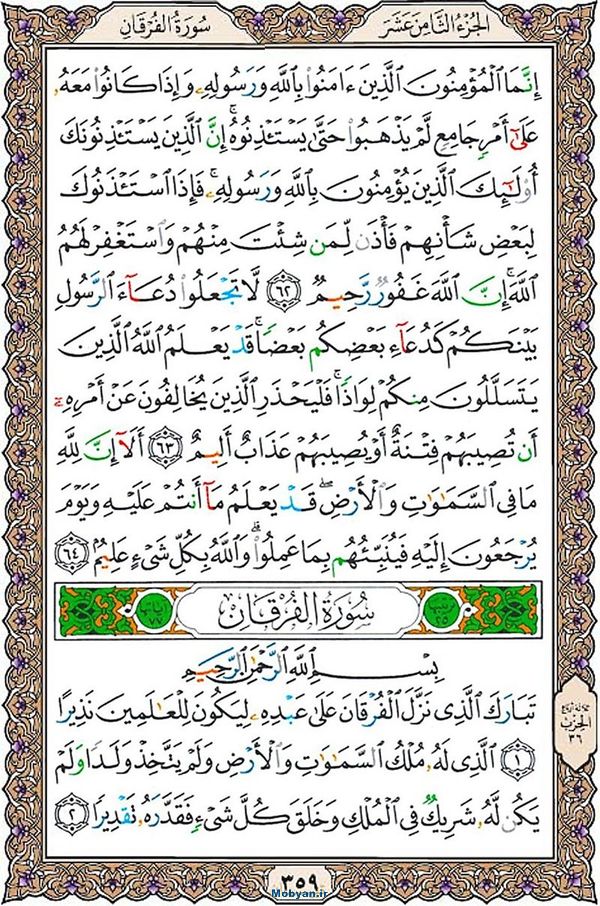 الجزء الثامن عشر
سورة الفرقان
إِنَّمَا ٱلْمُؤْمِنُونَ ٱلَّذِينَ ءَامَنُوا۟ بِٱللَّهِ وَرَسُولِهِۦ وَإِذَا كَانُوا۟ مَعَهُۥ
عَلَىٰٓ أَمْرٍ جَامِعٍ لَّمْ يَذْهَبُوا۟ حَتَّىٰ يَسْتَـْٔذِنُوهُ ۚ إِنَّ ٱلَّذِينَ يَسْتَـْٔذِنُونَكَ
أُو۟لَـٰٓئِكَ ٱلَّذِينَ يُؤْمِنُونَ بِٱللَّهِ وَرَسُولِهِۦ ۚ فَإِذَا ٱسْتَـْٔذَنُوكَ
لِبَعْضِ شَأْنِهِمْ فَأْذَن لِّمَن شِئْتَ مِنْهُمْ وَٱسْتَغْفِرْ لَهُمُ
ٱللَّهَ ۚ إِنَّ ٱللَّهَ غَفُورٌ رَّحِيمٌ ٦٢ لَّا تَجْعَلُوا۟ دُعَآءَ ٱلرَّسُولِ
بَيْنَكُمْ كَدُعَآءِ بَعْضِكُم بَعْضًا ۚ قَدْ يَعْلَمُ ٱللَّهُ ٱلَّذِينَ
يَتَسَلَّلُونَ مِنكُمْ لِوَاذًا ۚ فَلْيَحْذَرِ ٱلَّذِينَ يُخَالِفُونَ عَنْ أَمْرِهِۦٓ
أَن تُصِيبَهُمْ فِتْنَةٌ أَوْ يُصِيبَهُمْ عَذَابٌ أَلِيمٌ ٦٣ أَلَآ إِنَّ لِلَّهِ
مَا فِى ٱلسَّمَـٰوَٰتِ وَٱلْأَرْضِ ۖ قَدْ يَعْلَمُ مَآ أَنتُمْ عَلَيْهِ وَيَوْمَ
يُرْجَعُونَ إِلَيْهِ فَيُنَبِّئُهُم بِمَا عَمِلُوا۟ ۗ وَٱللَّهُ بِكُلِّ شَىْءٍ عَلِيمٌ ٦٤
سورة الفرقان
بِسْمِ ٱللَّهِ ٱلرَّحْمَـٰنِ ٱلرَّحِيمِ
تَبَارَكَ ٱلَّذِى نَزَّلَ ٱلْفُرْقَانَ عَلَىٰ عَبْدِهِۦ لِيَكُونَ لِلْعَـٰلَمِينَ نَذِيرًا
١ ٱلَّذِى لَهُۥ مُلْكُ ٱلسَّمَـٰوَٰتِ وَٱلْأَرْضِ وَلَمْ يَتَّخِذْ وَلَدًا وَلَمْ
يَكُن لَّهُۥ شَرِيكٌ فِى ٱلْمُلْكِ وَخَلَقَ كُلَّ شَىْءٍ فَقَدَّرَهُۥ تَقْدِيرًا ٢
الحزب
٣٦
٣٥٩
Mobyan.ir